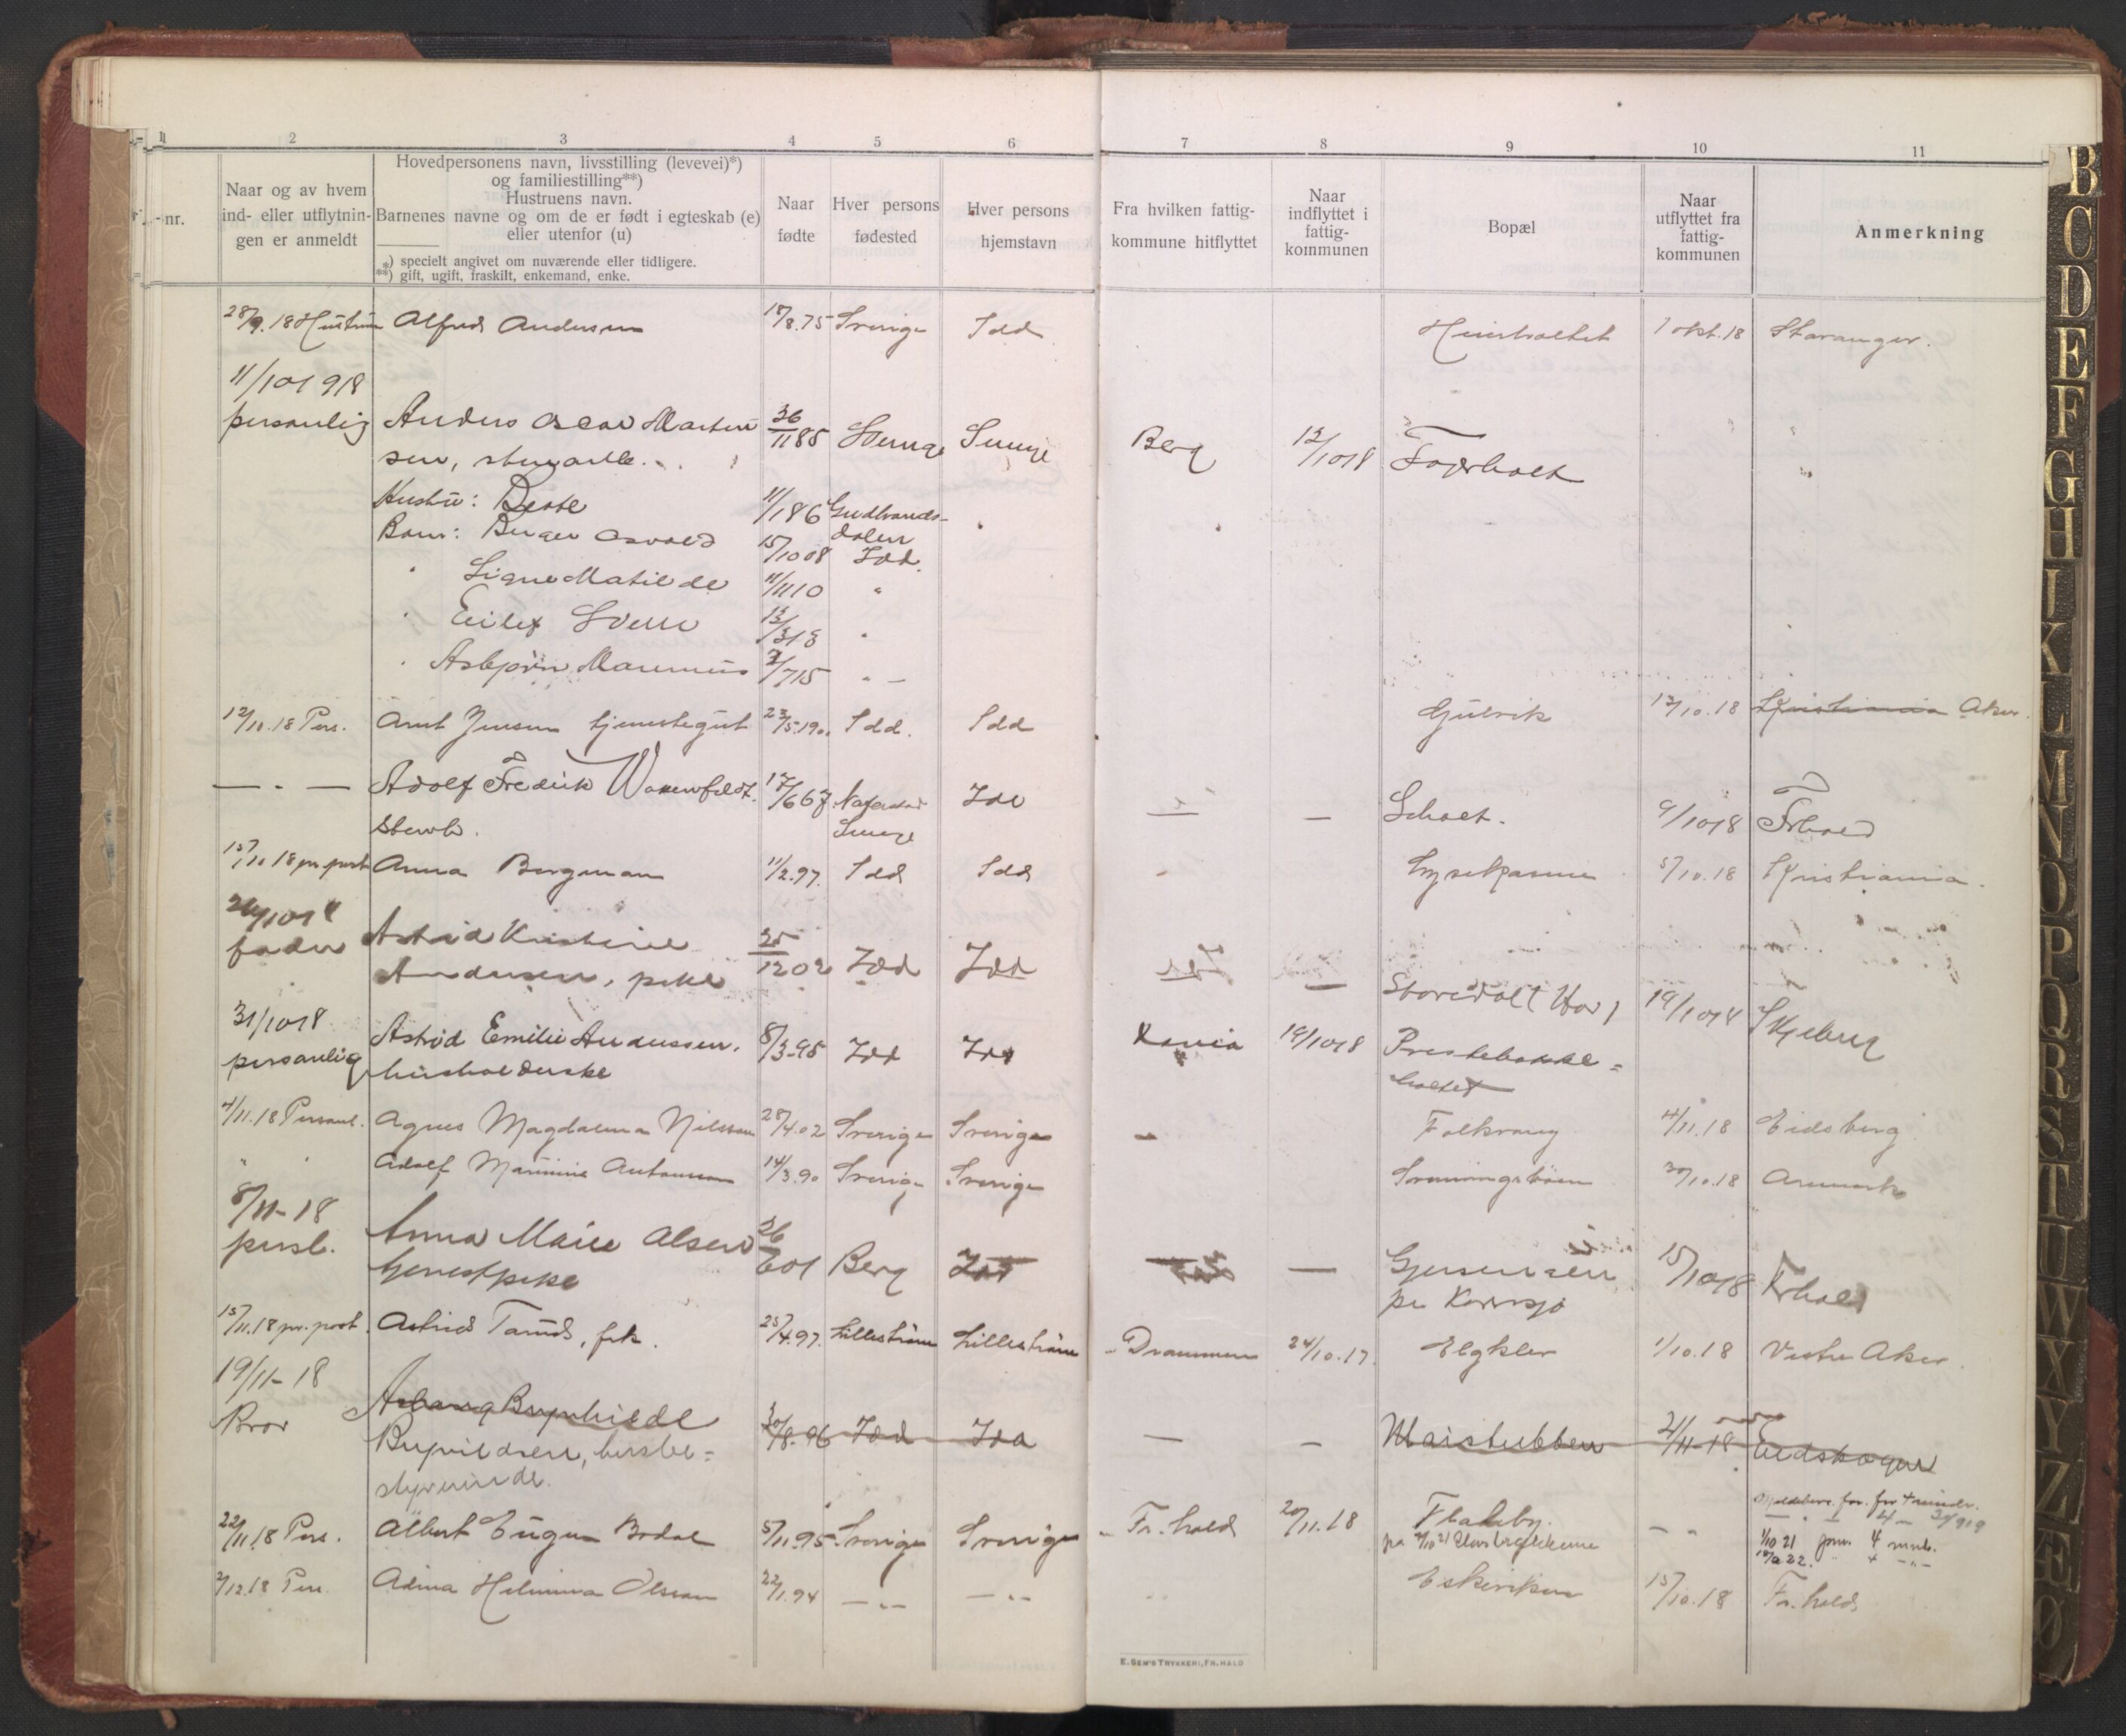 1 2 3 4 5 6 7 8 9 10 11
-nr.
Naar og av hvem
ind- eller utflytnin-
gen er anmeldt
Hovedpersonens navn, livsstilling (levevei)*)
og familiestilling**)
Hustruens navn.
Barnenes navne og om de er født i egteskab (e)
eller utenfor (u)
*) specielt angivet om nuværende eller tidligere.
**) gift, ugift, fraskilt, enkemand, enke.
Naar
fødte
Hver persons
fødested
Hver persons
hjemstavn
Fra hvilken fattig-
kommune hitflyttet
Naar
indflyttet i
fattig-
kommunen
Bopæl
Naar
utflyttet fra
fattig-
kommunen
Anmerkning
28/9.18 Hustru Alfred Andersen 18/8.75 Sverige Idd 1 okt. 18 Stavanger.
11/10 1918
personlig Anders Oscar Martin 11 85 Sverige Sverige Berg 12/10 18 Fagerholt
sen,
Hustru: Beate 11/1 86 Gudbrands-
dalen
Barn: Birger Osvald 15/10 08 Idd.
" Signe Matilde 11/11 10 "
" Eilef Sverre 12/3 13 "
" Asbjørn Marenius 2/7 15 " -
12/10.18 Pers. Arnt Jensen tjenestegut 23/5.1900 Idd. Idd Gjelvik 12/10.18 Kristiania Aker.
— " — Adolf Fredrik 17/6 67 Idd — — Scholt. 9/10 18 Frhald
Stenh. Sverige
15/10 18 pr. post Anna Bergman 11/2.97. Idd Idd - 5/10.18 Kristiania.
26/10 18
fader Astrid Kristine 25
Andersen, pike 12 02 Idd Idd — Storedal 19/10 18 Skjeberg
31/10 18
personlig Astrid Emilie Andersen, 8/3-95 Idd Idd 19/10 18 Prestebakke=
husholderske holtet
4/11.18 Personl. Agnes Magdalena Nilsson 28/4.02 Sverige Sverige - Folkvang 4/11.18 Eidsberg
" " Adolf Marinius Antonsen 14/3.90 Sverige Sverige 30/10.18 Aremark
8/11-18
persl. Anna Marie Olsen 26
tjenestpike 01 Berg Idd — 15/10 18 Frhald
pr Kornsjø
15/11.18 pr. post. Astrid Tarud, frk. 25/4.97. Lillestrøm Lillestrøm - Drammen 24/10.17. Elgkler 1/10.18 Vestre Aker.
19/11-18
Bror Aslaug Brynhilde 30/8.96 Idd Idd — — Maistubben 21/11-18 Eidskogen
Brynildsen, husbe=
styrerinde.
22/11.18 Pers. Albert Eugen Bodal 5/11.95 Sverige Sverige - Fr.hald 20/11.18 Flateby. — "
1/10 21 4
2/12.18 Pers. Adina Helmina Olsson 22/1.94 — " — — " — 15/10.18 Fr.hald.
E. SEM'S TRYKKERI, FR.HALD
B
C
D
E
F
G
H
I
K
L
M
N
O
P
Q
R
S
T
U
W
X
Y
Z
Æ
Ø